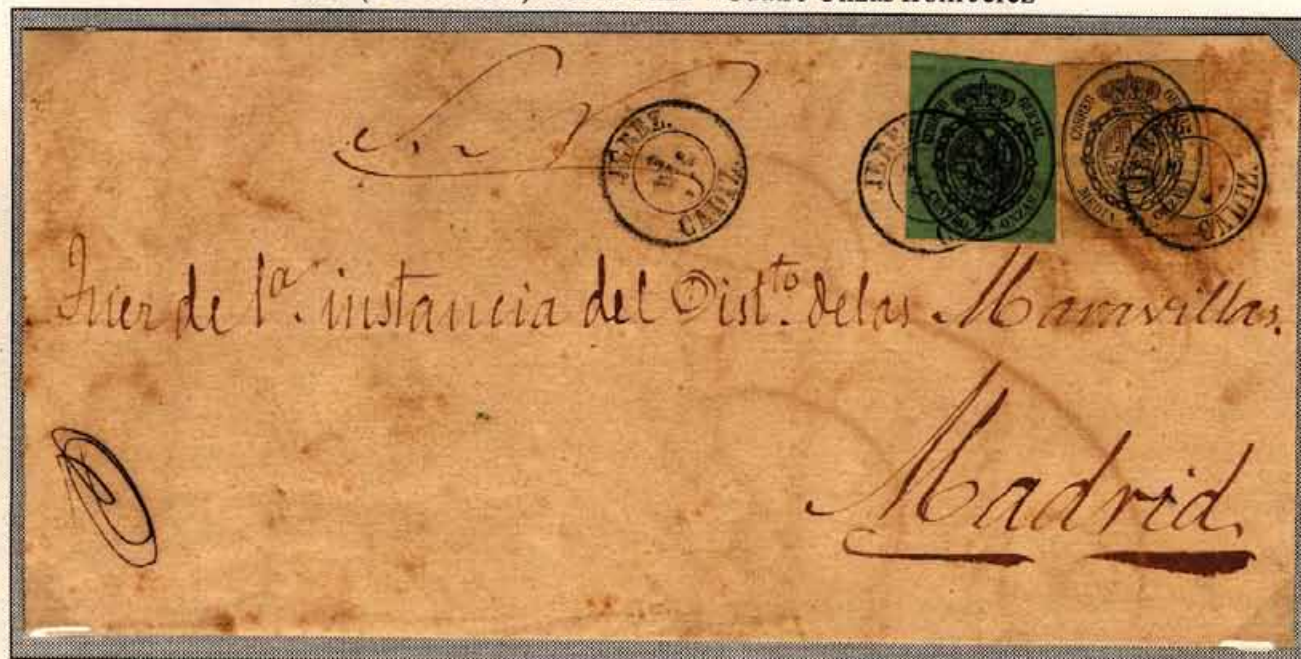 JEREZ.
CADIZ.
JEREZ
CORREO OFICIAL
CUATRO ONZAS
CORREO OFICIAL
MEDIA ONZA
CADIZ.
Juez de 1ª. instancia del Distto. de las Maravillas.
Madrid.